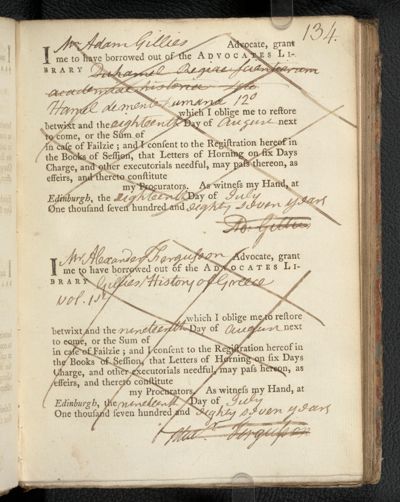 134.
I Mr Adam Gillies Advocate, grant
me to have borrowed out of the ADVOCATES LI-
BRARY Duhamel Regiae scientiarum
academiae historia
Hamel de mente humana 12o
which I oblige me to restore
betwixt and the eighteenth Day of August next
to come, or the Sum of
in case of Failzie; and I consent to the Registration hereof in
the Books of Session, that Letters of Horning on six Days
Charge, and other executorials needful, may pass thereon, as
effeirs, and thereto constitute
my Procurators. As witness my Hand, at
Edinburgh, the eighteenth Day of July
One thousand seven hundred and eighty seven years
Ad. Gillies
I Mr Alexander Fergusson Advocate, grant
me to have borrowed out of the ADVOCATES LI-
BRARY Gillies History of Greece
vol. 1st
which I oblige me to restore
betwixt and the nineteenth Day of August next
to come, or the Sum of
in case of Failzie; and I consent to the Registration hereof in
the Books of Session, that Letters of Horning on six Days
Charge, and other executorials needful, may pass hereon, as
effeirs, and thereto constitute
my Procurators. As witness my Hand, at
Edinburgh, the nineteenth Day of July
One thousand seven hundred and eighty seven years
Alexr. Fergusson